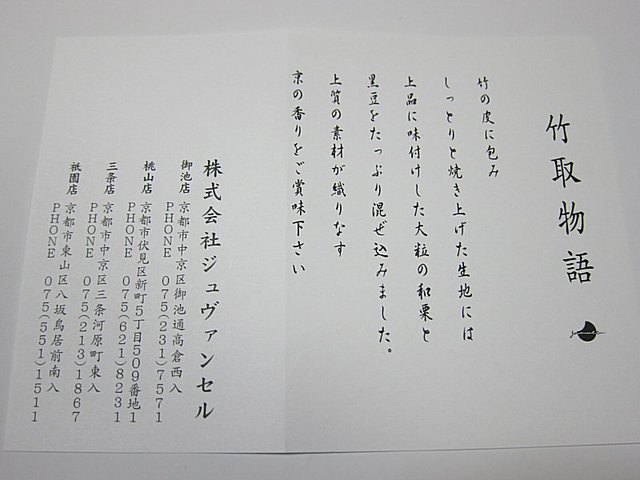 竹取物語
竹の皮に包み
しっとりと焼き上げた生地には
上品に味付けした大粒の和栗と
黒豆をたっぷり混ぜ込みました。
上質の素材が織りなす
京の香りをご賞味下さい
株式会社ジュヴァンセル
御池店 京都市中京区御池通高倉西入
PHONE 075(231)7571
桃山店 京都市伏見区新町5丁目509番地1
PHONE 075(621)8231
三条店 京都市中京区三条河原町東入
PHONE 075(213)1867
祇園店 京都市東山区八坂鳥居前南入
PHONE 075(551)1511